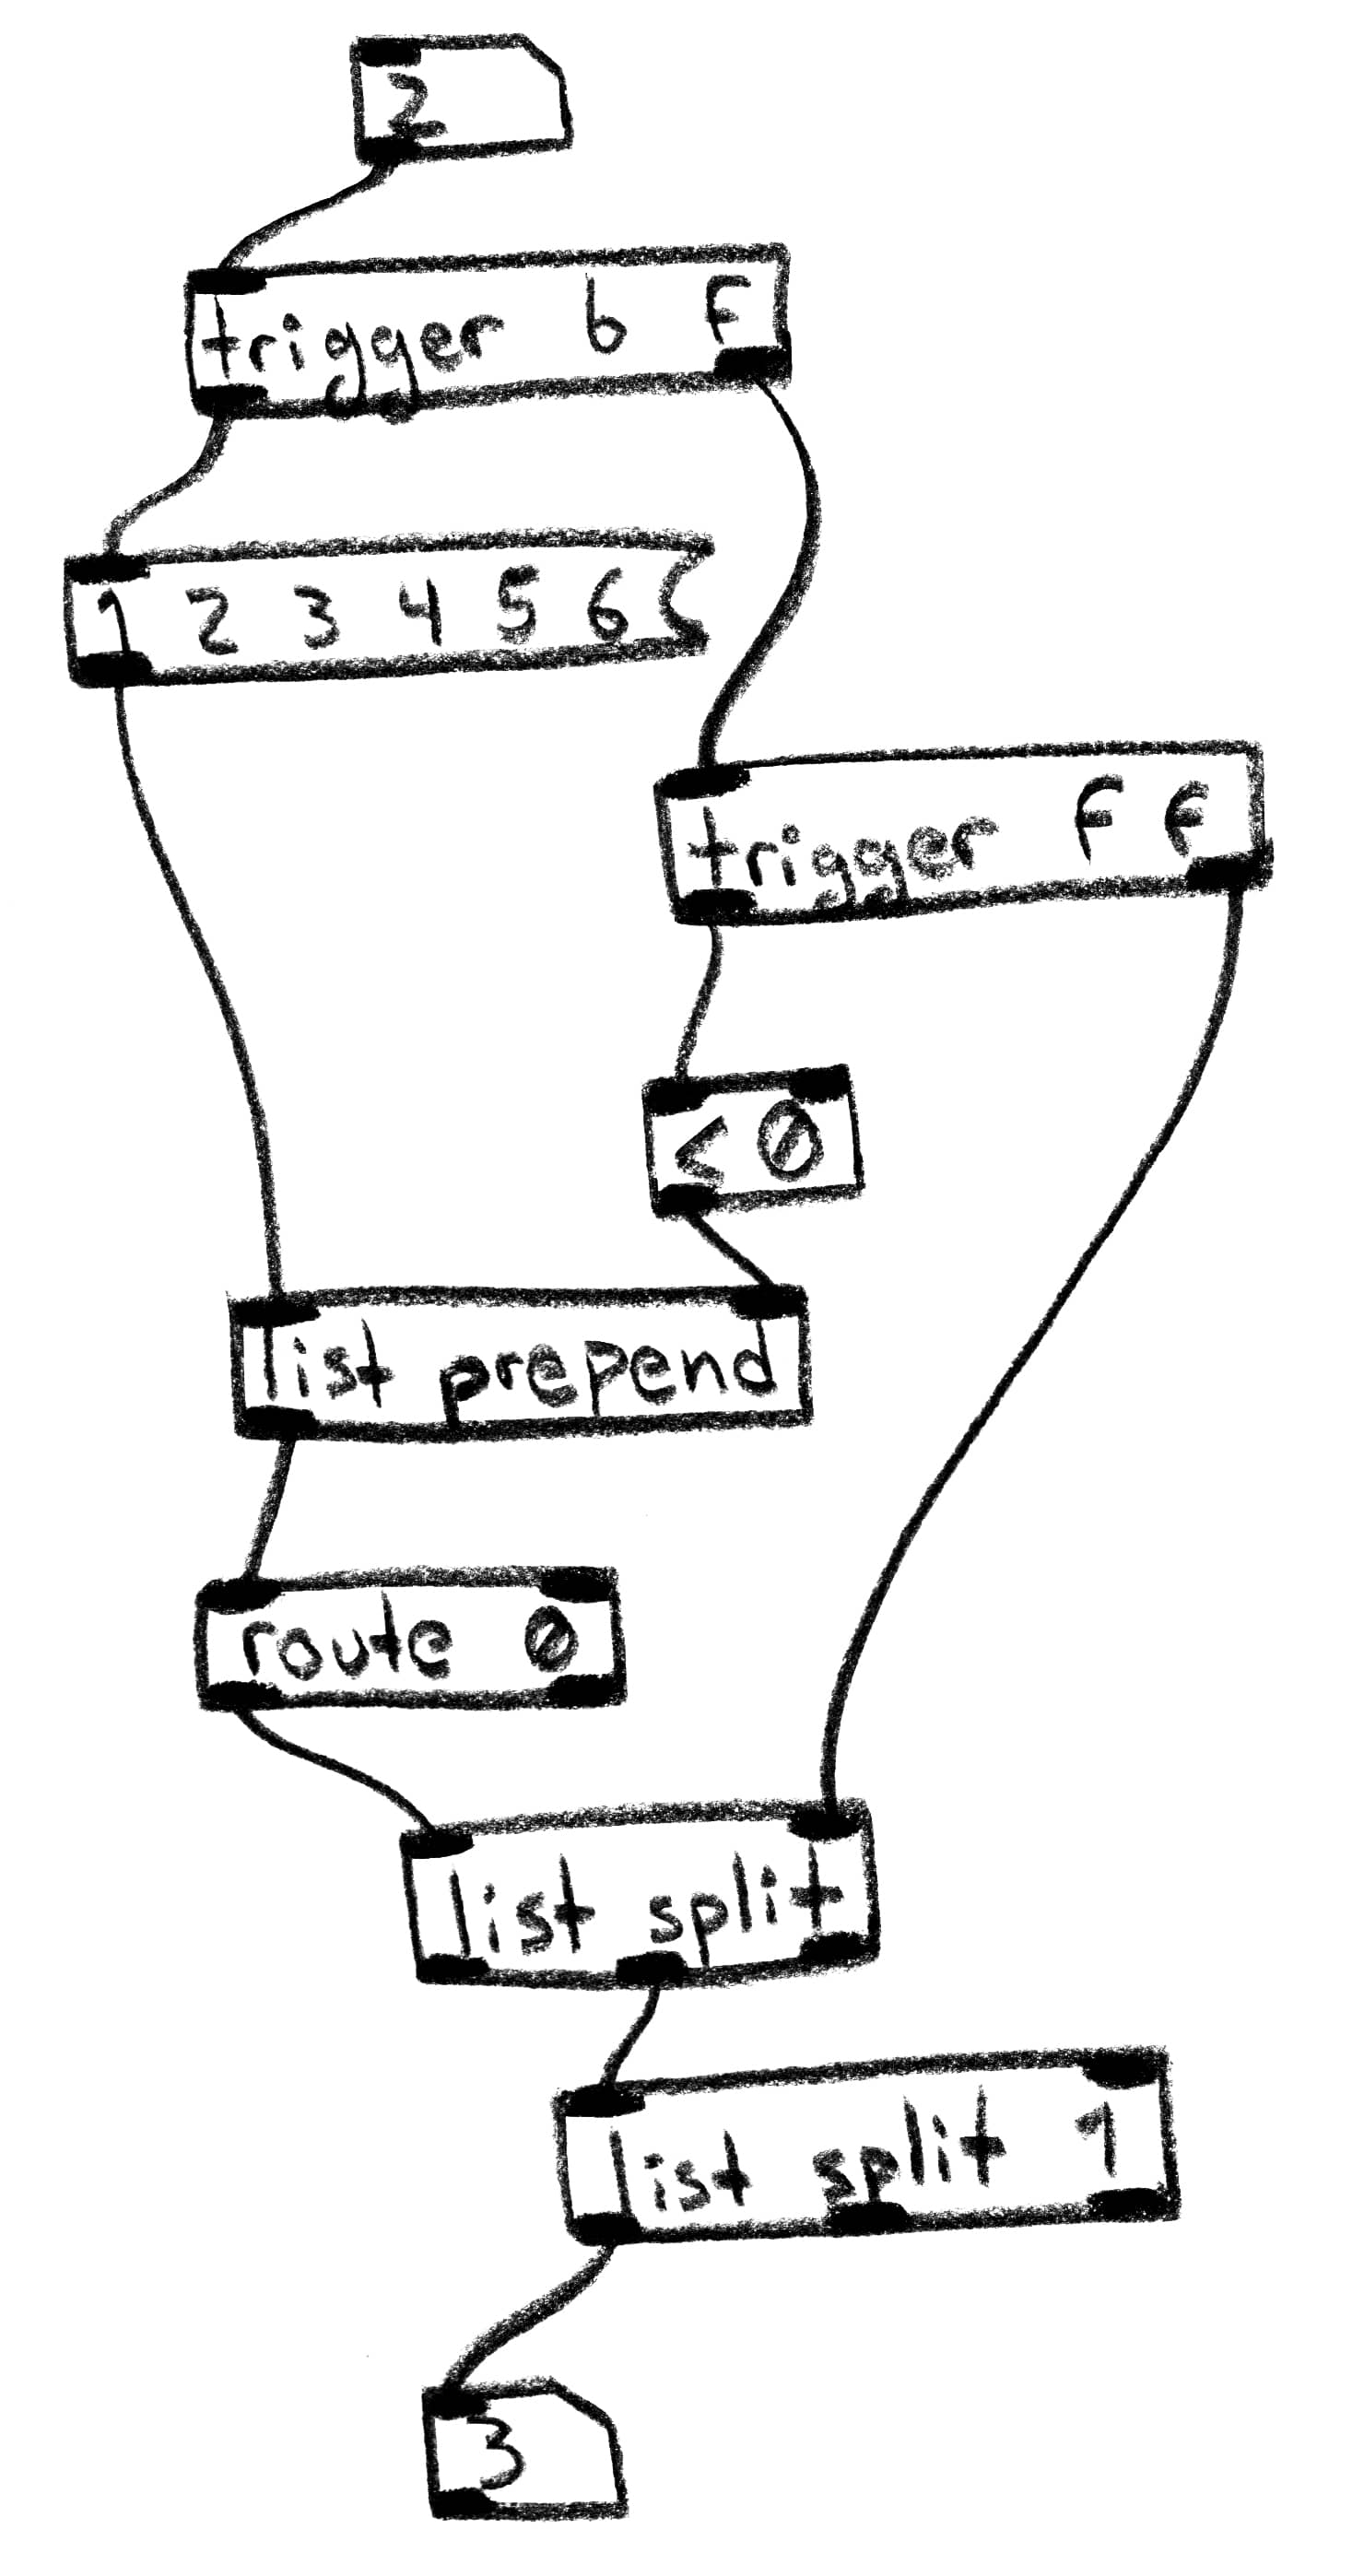 2
trigger b f
1 2 3 4 5 6
trigger f f
< 0
list prepend
route 0
list split
list split 1
3